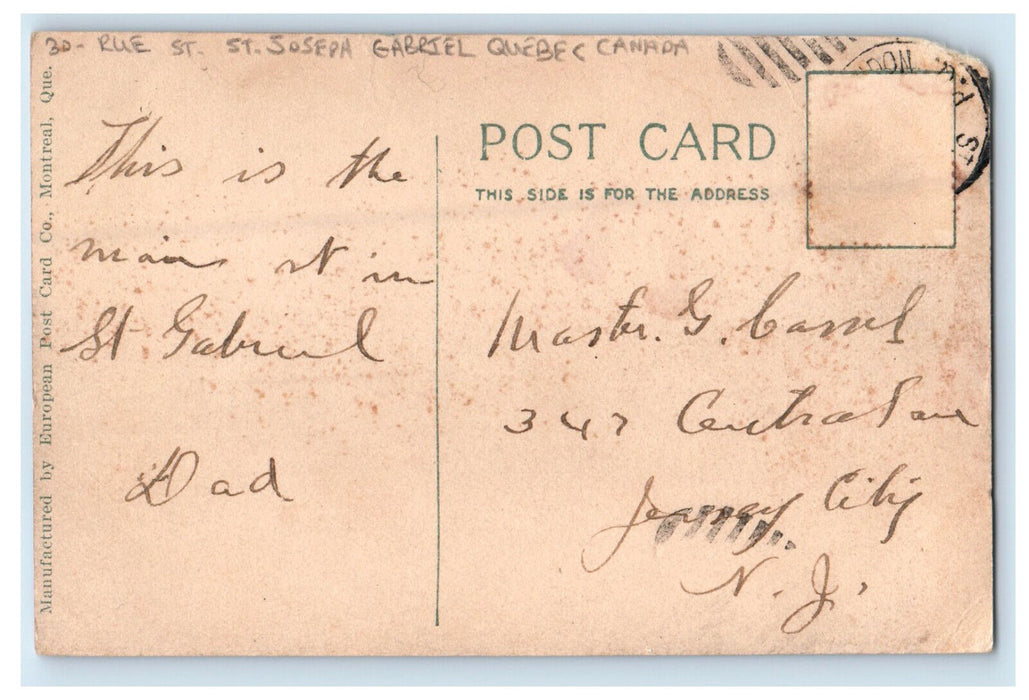 30- RUE ST. ST. JOSEPH GABRIEL QUEBEC CANADA
Manufactured by European Post Card Co., Montreal, Que.
This is the
main st in
St Gabriel
Dad
POST CARD
THIS SIDE IS FOR THE ADDRESS
DON
P.Q.
ST
Master. G. Cassel
347 Central ave
Jersey City
N. J.